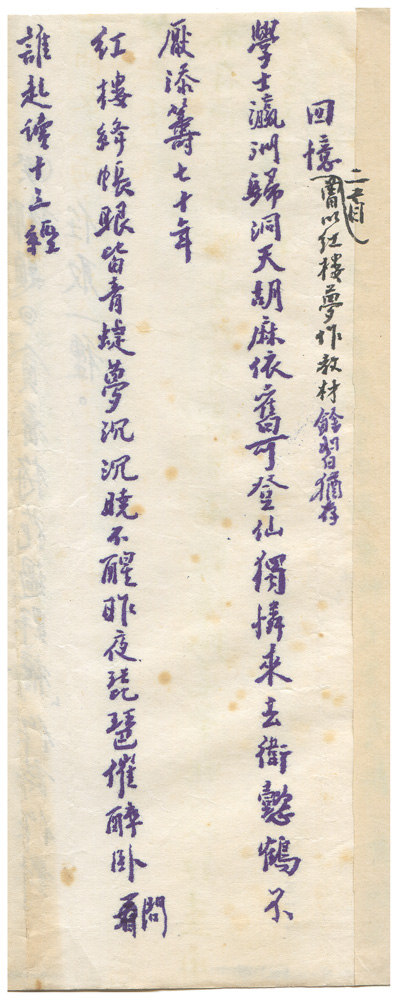 回憶二首嘗以紅樓夢作教材餘習猶存
學士瀛洲歸洞天胡麻依舊可登仙獨憐來去衛懿鶴不
厭添籌七十年
紅樓絳帳眼皆青蜨夢沉沉曉不醒昨夜琵琶催醉臥問
誰起讀十三經